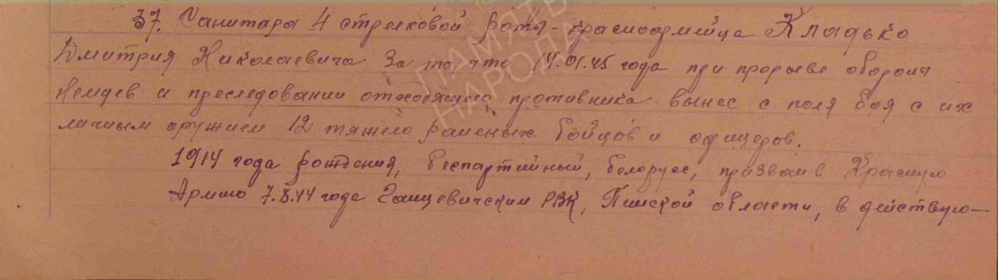 37. Санитара 4 стрелковой роты - красноармейца Кладько
Дмитрия Николаевича За то, что 14.01.45 года при прорыве оборон
немцев и преследовании отходящего противника вынес с поля боя с их
личным оружием 12 тяжело раненых бойцов и офицеров.
1914 года рождения, беспартийный, белорус, призван в Красную
Армию 7.8.44 года Ганцевичским РВК, Пинской области, в действую-
ПАМЯТЬ
НАРОДА